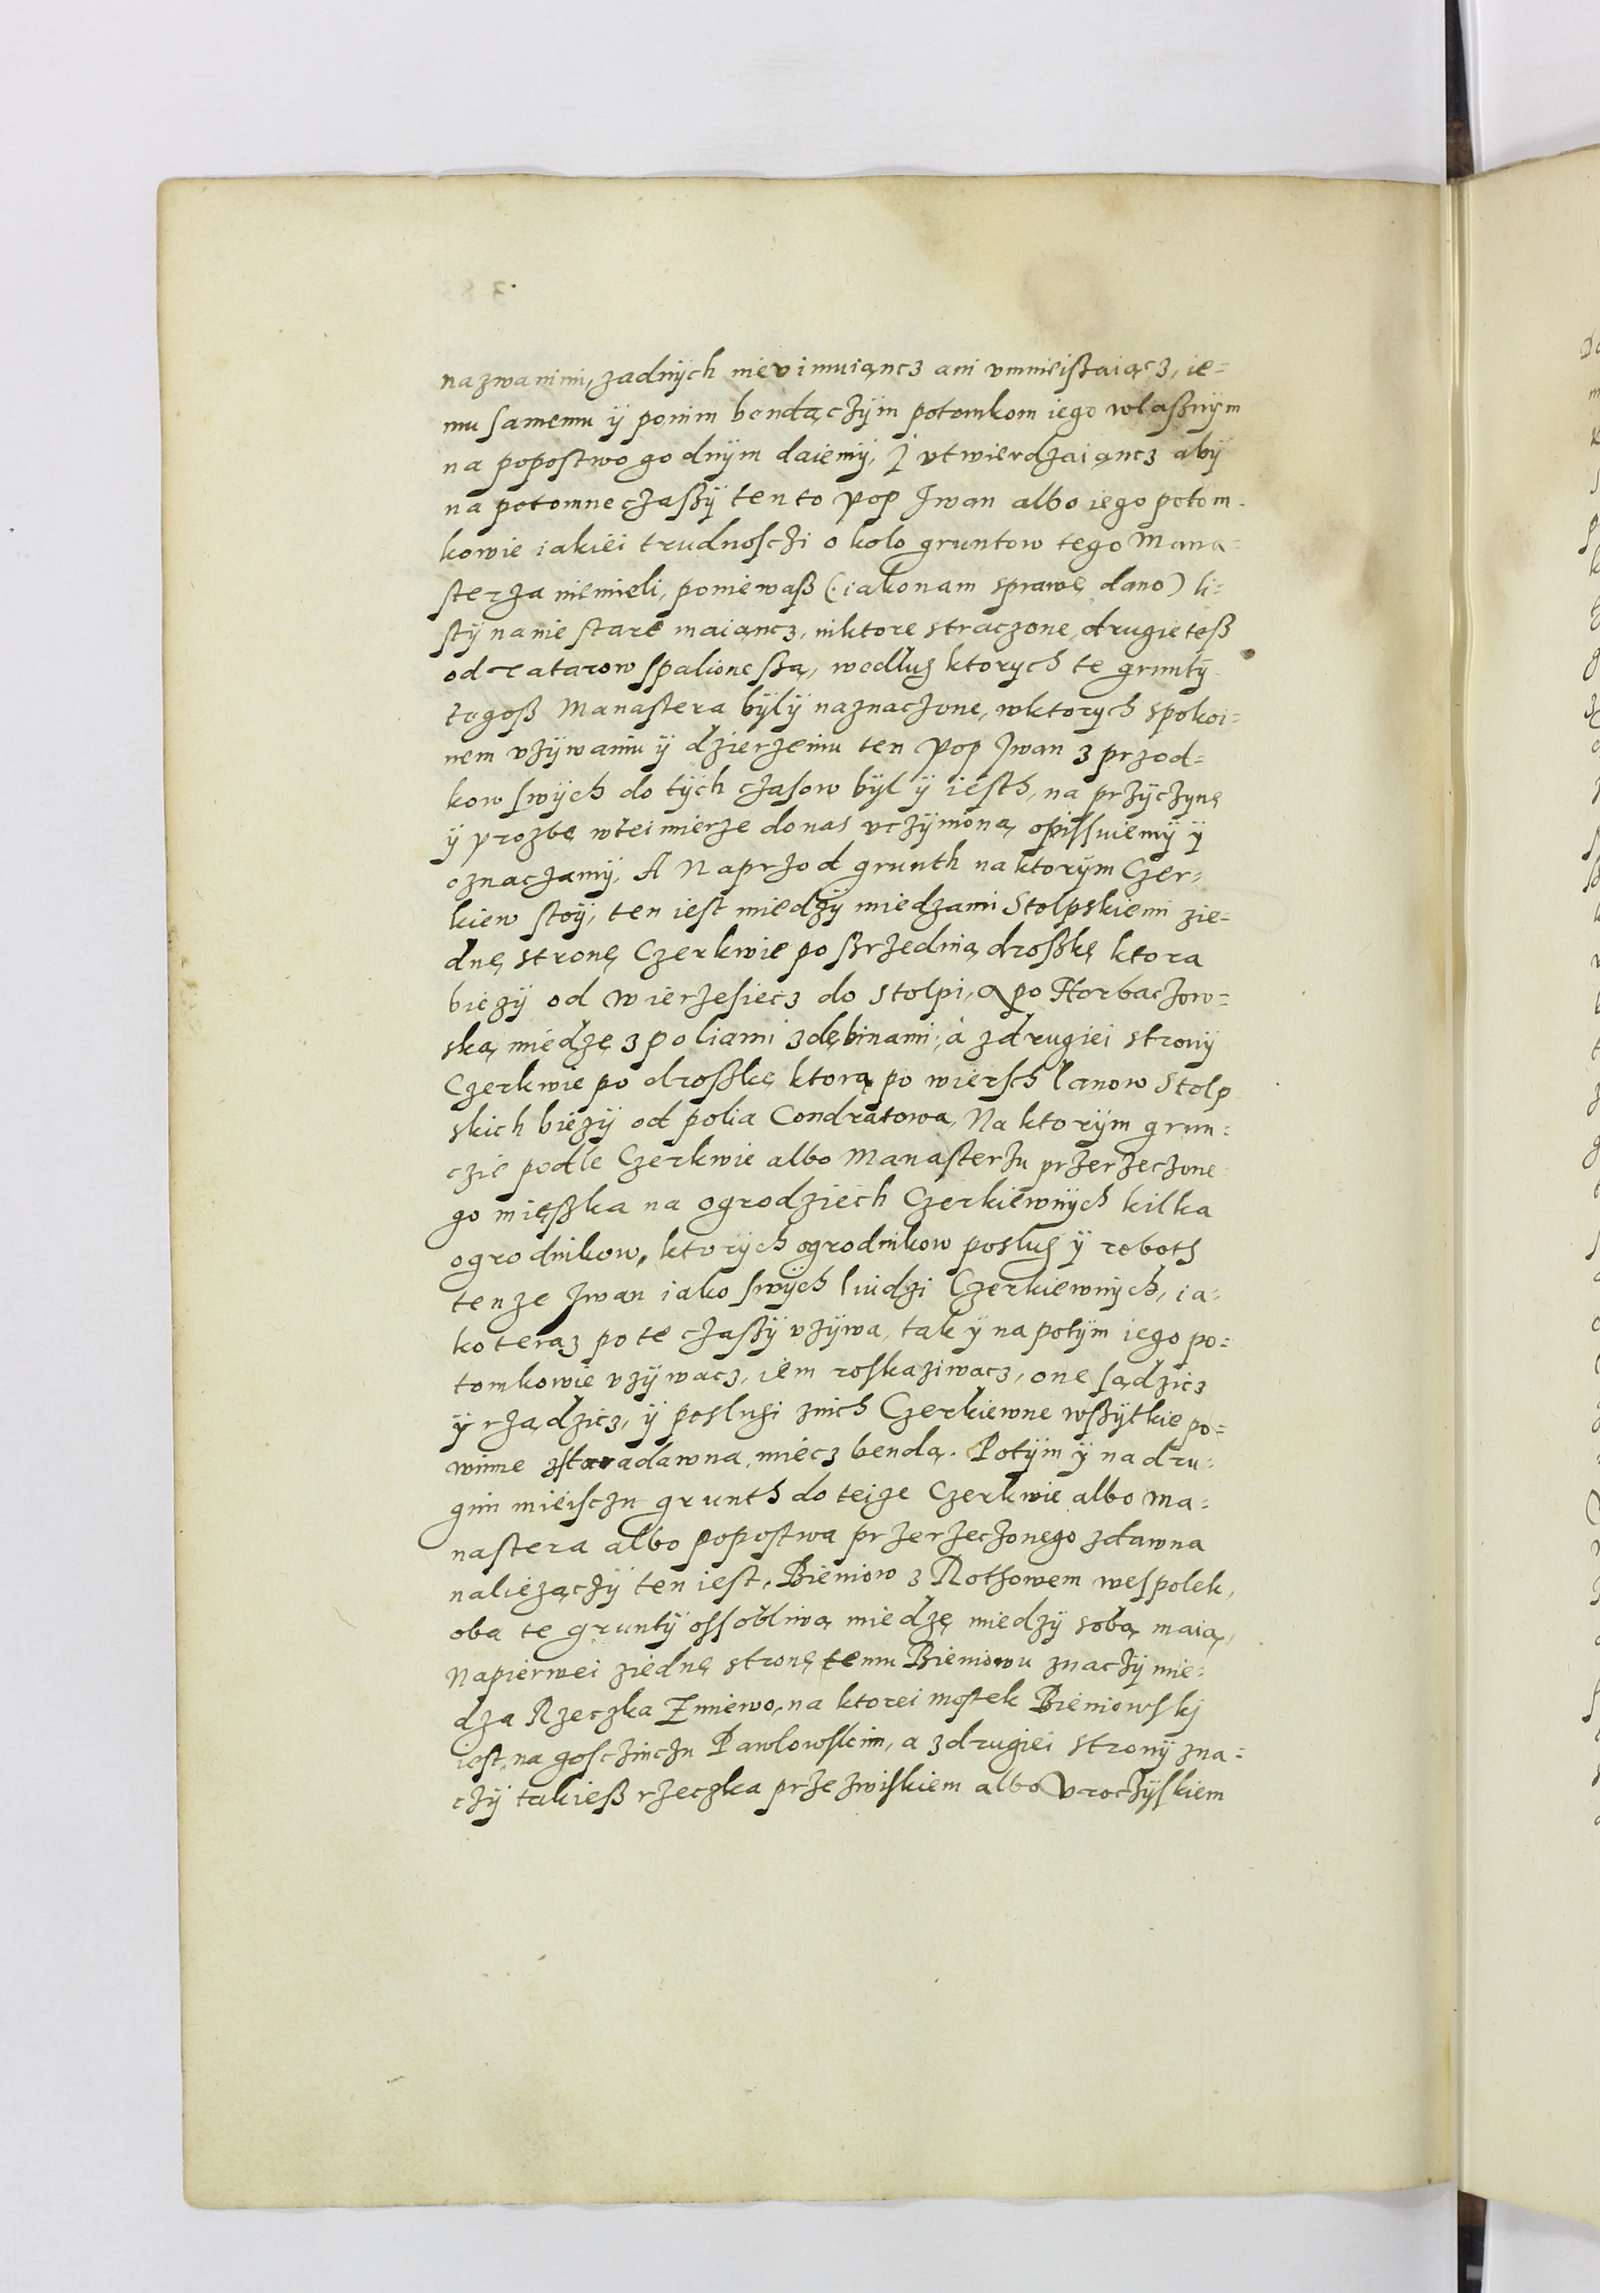 nazwanimi, zadnÿch nievimuiąncz ani vmnieißaiącz, ie=
mu samemu ÿ ponim bendączÿm potomkom iego własznÿm
na popostwo godnÿm daiemÿ, J vtwierdzaiąncz abÿ
na potomne czaszÿ ten to Pop Jwan albo iego potom-
kowie iakiei trudnosczi o kolo gruntow tego Mana=
sterza niemieli, poniewaß (iakonam sprawę dano) li=
stÿ na nie stare maiąncz, niktore straczone, drugie teß
od Tatarow spalione szą, wedlug ktorych te gruntÿ
tegoß Manastera bÿlÿ naznaczone, wktorych spokoi=
nem vzÿwaniu ÿ dzierzeniu ten Pop Jwan z przod=
kow swÿch do tÿch czasow bÿl ÿ iesth, na przÿczynę
ÿ prozbę wtei mierze donas vczÿnioną opissuiemÿ ÿ
oznaczamÿ, A Naprzod grunth na ktorÿm Czer=
kiew stoÿ, ten iest miedzÿ miedzami Stolpskiemi zie=
dnę stronę Czerkwie po szrzednią droszkę ktora
bieżÿ od Wierzesiecz do Stolpi, a po Horbaczow=
ską miedzę z poliami zdębinami, á zdrugiei stronÿ
Czerkwie po droszkę ktora po wiersch lanow Stolp
skich bieżÿ od polia Condratowa, Na ktorÿm grun=
czie podle Czerkwie albo Manasterzu przerzeczone=
go mięszka na ogrodziech Czerkiewnÿch kilka
ogrodnikow, ktorÿch ogrodnikow poslug ÿ roboth
tenze Jwan iako swÿch liudzi Czerkiewnÿch, ia=
ko teraz po te czaszÿ vzÿwa, tak ÿ na potÿm iego po=
tomkowie vzÿwacz, iem roskaziwacz, one sądzicz
ÿ rządzicz, ÿ poslugi znich Czerkiewne wszÿtkie po=
winne zstaradawna, miecz bendą. Potÿm ÿ na dru=
gim mieisczu grunth do teize Czerkwie albo Ma=
nastera albo popostwa przerzeczonego zdawna
naliezączÿ ten iest, Bieniow z Rothowem wespolek,
oba te gruntÿ ossobliwą miedzę miedzÿ sobą maią,
Napierwei ziednę stronę temu Bieniowu znaczÿ mie=
dza Rzeczka Zmiewo, na ktorei mostek Bieniowskj
iest, na gosczinczu Pawlowskim, a zdrugiei stronÿ zna=
czÿ takieß rzeczka przezwiskiem albo Vroczÿskiem